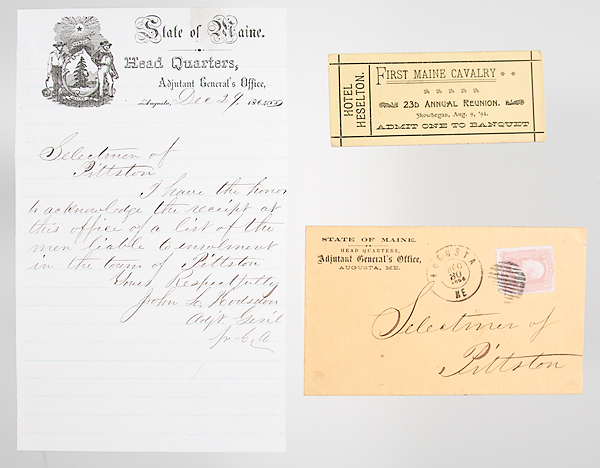 State of Maine.
Head Quarters,
Adjutant General's Office,
Augusta, Dec 29, 186
Selectmen of
Pittston
I have the honor
to acknowledge the receipt at
this office of a list of the
men liable to enrolment
in the town of Pittston
Yours Respectfully
John L. Hodsdon
Adjt Genl
HOTEL HESELTON.
FIRST MAINE CAVALRY
23D ANNUAL REUNION.
Skowhegan, Aug. 9, '94.
ADMIT ONE TO BANQUET
STATE OF MAINE.
HEAD QUARTERS,
Adjutant General's Office,
AUGUSTA, ME.
AUGUSTA
DEC
30
1864
ME
Selectmen of
Pittston